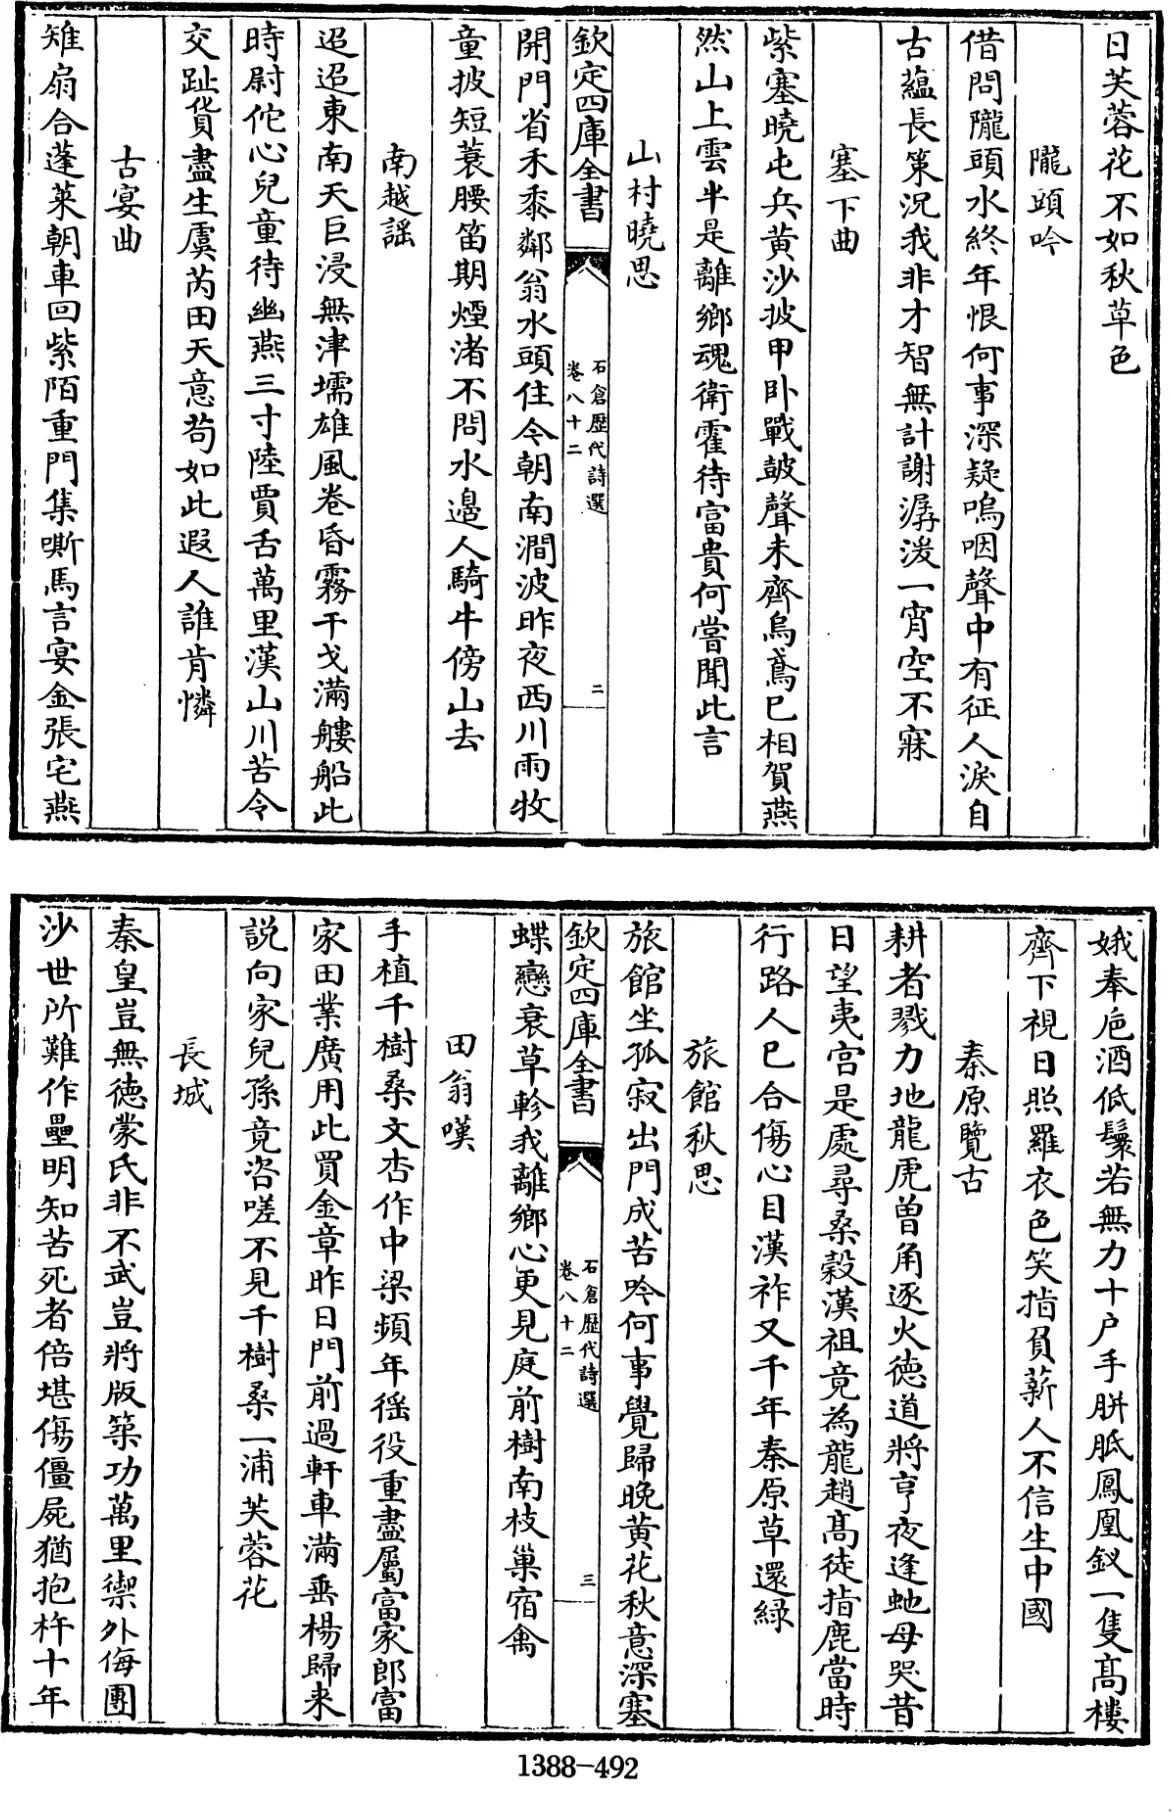 日芙蓉花不如秋草色
隴頭吟
借問隴頭水終年恨何事深疑嗚咽聲中有征人淚自
古蘊長策況我非才智無計謝潺湲一宵空不寐
塞下曲
紫塞曉屯兵黃沙披甲卧戰鼓聲未齊烏鳶已相賀燕
然山上雲半是離鄉魂衛霍待富貴何嘗聞此言
山村曉思
欽定四庫全書
石倉歷代詩選
卷八十二
二
開門省禾黍鄰翁水頭住今朝南澗波昨夜西川雨牧
童披短蓑腰笛期煙渚不問水邉人騎牛傍山去
南越謡
迢迢東南天巨浸無津壖雄風卷昏霧干戈滿艛船此
時尉佗心兒童待幽燕三寸陸賈舌萬里漢山川苦令
交趾貨盡生虞芮田天意苟如此遐人誰肯憐
古宴曲
雉扇合蓬萊朝車回紫陌重門集嘶馬言宴金張宅燕
娥奉巵酒低鬟若無力十户手胼胝鳳凰釵一隻高樓
齊下視日照羅衣色笑指負薪人不信生中國
秦原覽古
耕者戮力地龍虎曾角逐火德道將亨夜逢虵母哭昔
日望夷宫是處尋桑穀漢祖竟為龍趙高徒指鹿當時
行路人已合傷心目漢祚又千年秦原草還緑
旅館秋思
旅館坐孤寂出門成苦吟何事覺歸晚黄花秋意深塞
欽定四庫全書
石倉歷代詩選
卷八十二
三
蝶戀衰草軫我離鄉心更見庭前樹南枝巢宿禽
田翁嘆
手植千樹桑文杏作中梁頻年徭役重盡屬富家郎富
家田業廣用此買金章昨日門前過軒車滿垂楊歸来
説向家兒孫竟咨嗟不見千樹桑一浦芙蓉花
長城
秦皇豈無德蒙氏非不武豈將版築功萬里禦外侮團
沙世所難作壘明知苦死者倍堪傷僵屍猶抱杵十年
1388-492